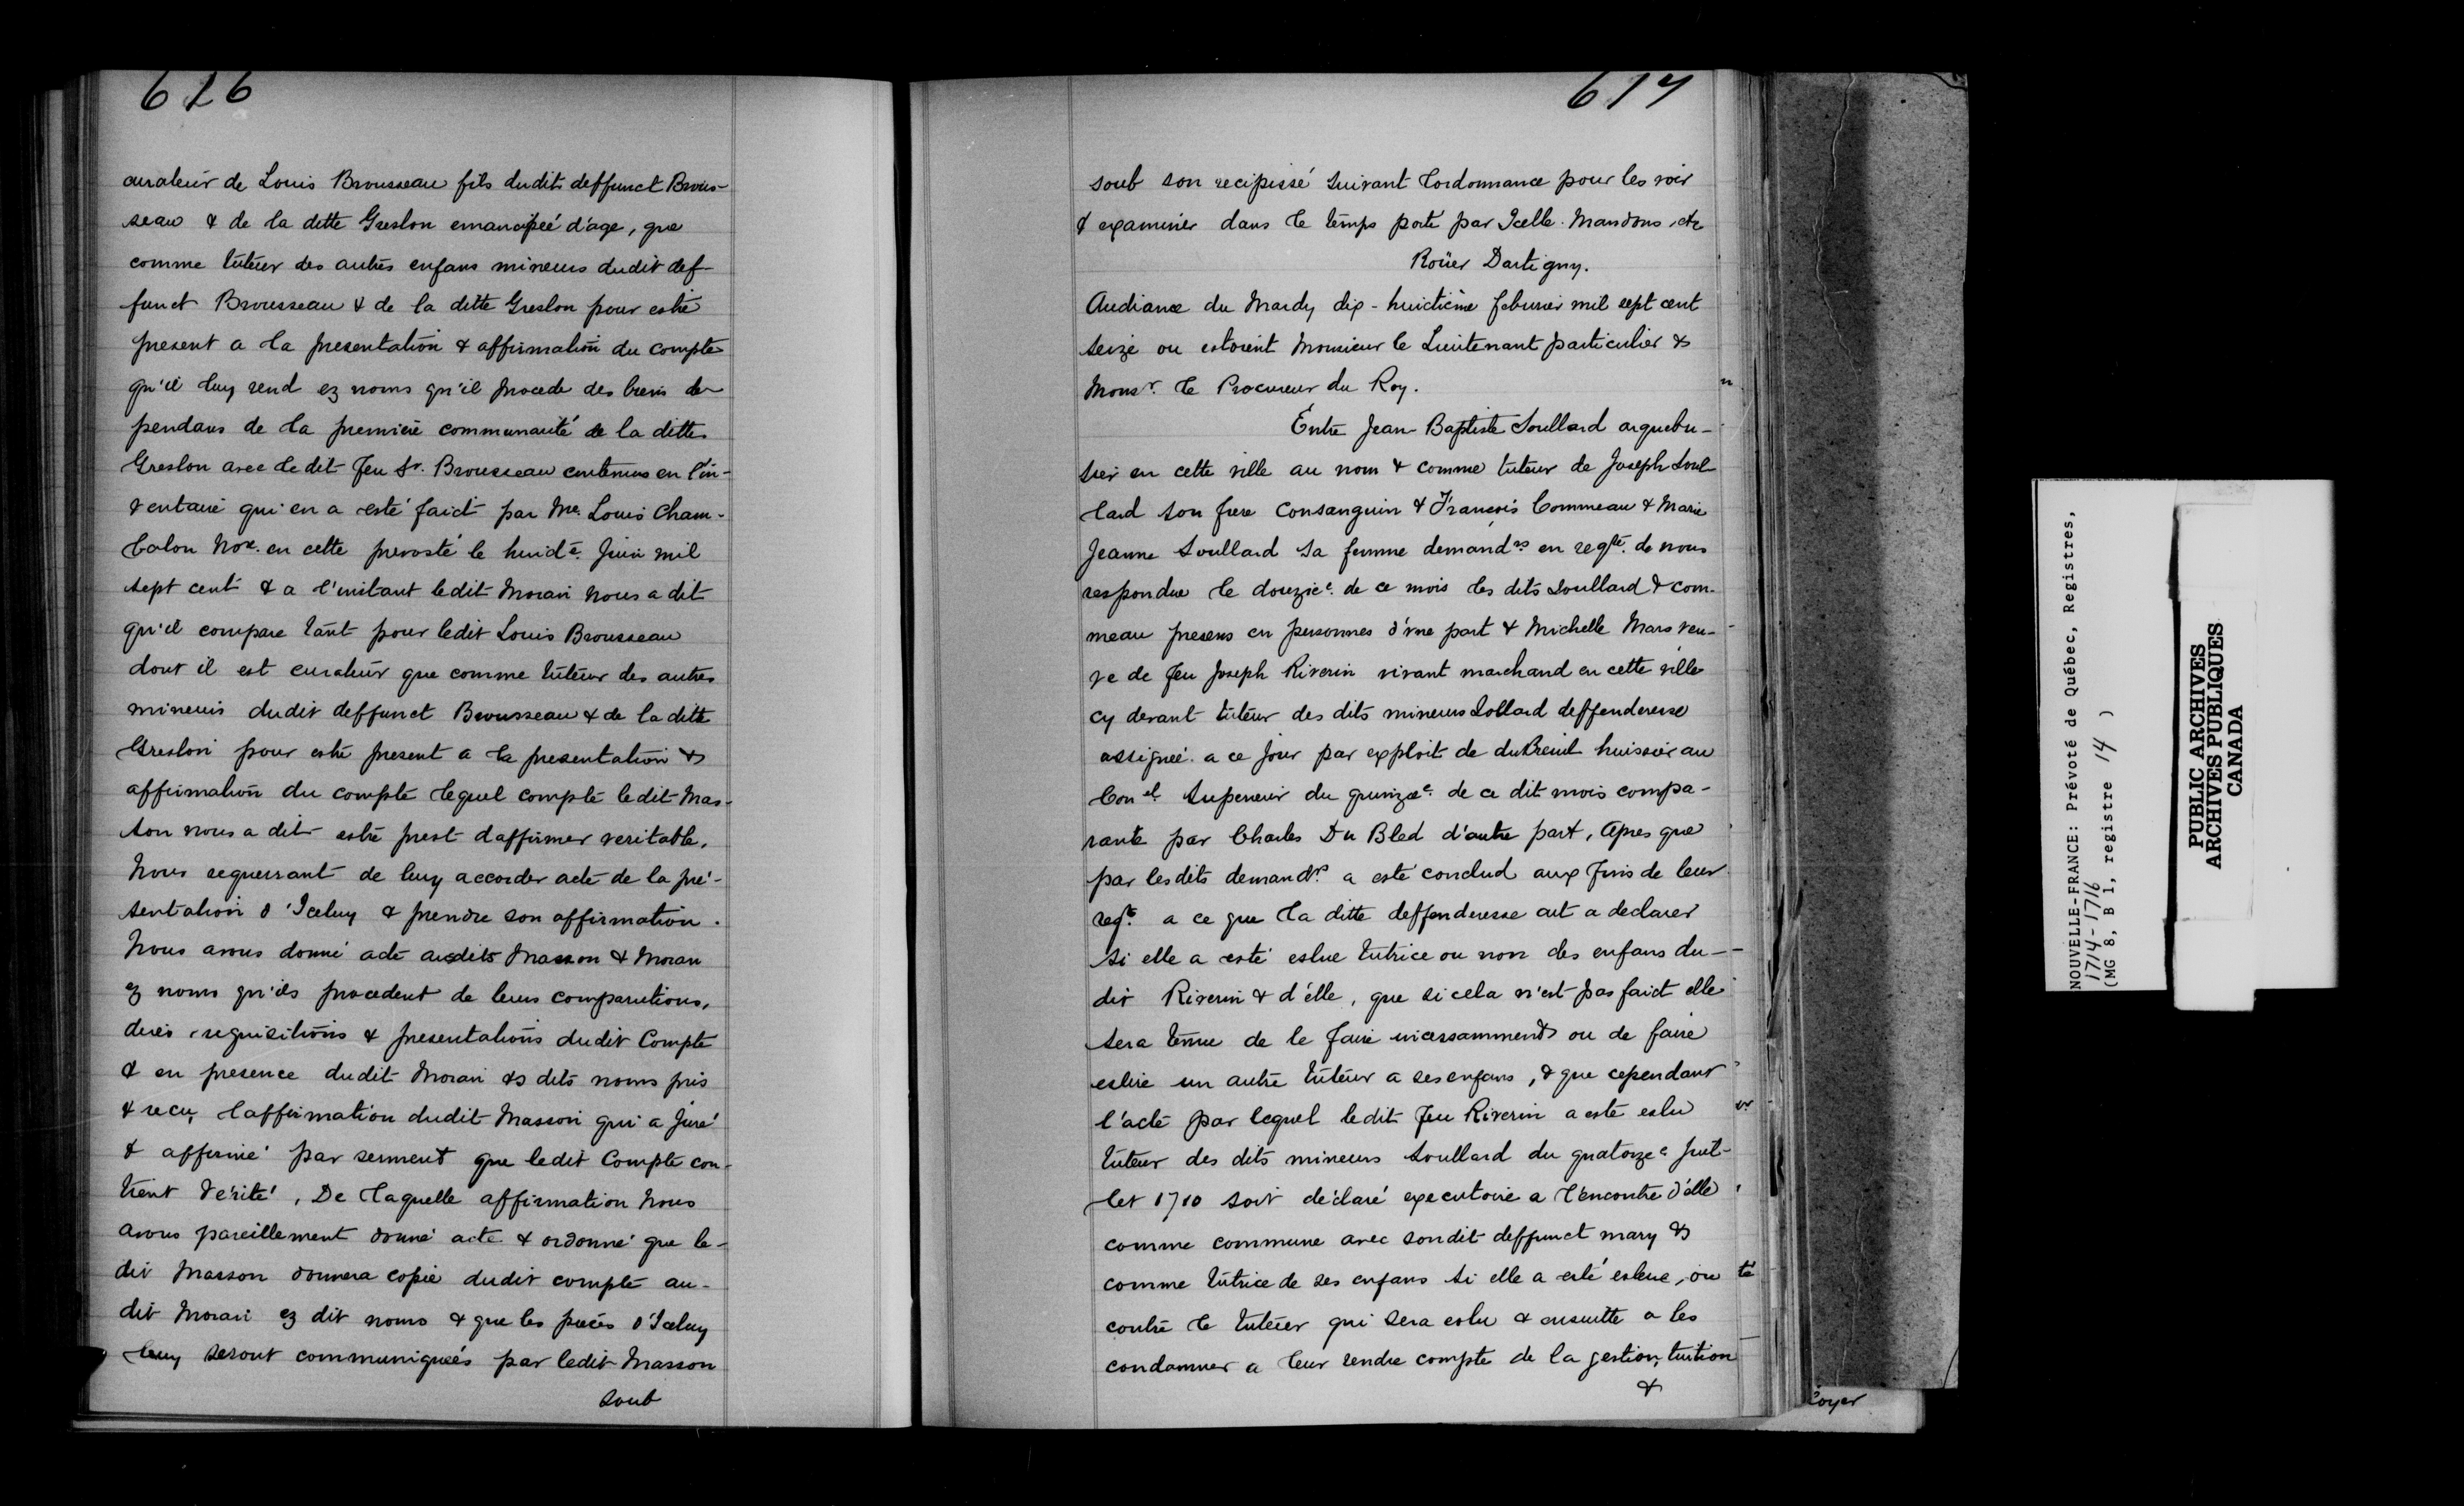 616
curateur de Louis Brousseau fils dudit deffunct Brous-
seau & de la dette Greslon emancipéé d'age, que
comme tuteur des autres enfans mineurs dudit def-
funct Brousseau & de la dette Greslon pour estre
present a la presentation & affirmation du compte
qu'il luy rend ez noms qu'il procede des biens de-
pendans de la premiere communauté de la ditte
Greslon avec ledit feu Sr. Brousseau contenus en l'in-
ventaire qui en a esté faict par Me. Louis Cham-
balon Nore. en cette prevosté le huide. Juin mil
sept cent & a l'instant ledit Moran nous a dit
qu'il compare tant pour ledit Louis Brousseau
dont il est curateur que comme tuteur des autres
mineurs dudit deffunct Brousseau & de la ditte
Greslon pour estre present a la presentation &
affirmation du compte lequel compte ledit Mas-
son nous a dit estre prest d'affirmer veritable,
Nous requerrant de luy accorder acte de la pré-
sentation d'Iceluy & prendre son affirmation.
Nous avons donné acte ausdits Masson & Moran
ez noms qu'ils procedent de leurs comparutions,
dires requisitions & presentations dudit Compte
& en presence dudit Moran es dits noms pris
& recu, l'affirmation dudit Masson qui a Juré
& affirmé par serment que ledit Compte con-
tient vérité, De laquelle affirmation Nous
avons pareillement donné acte & ordonné que le-
dit Masson donnera copie dudit compte au-
dit Moran ez dit noms & que les pieces d'Iceluy
luy seront communiquées par ledit Masson
soub
617
soub son recipissé suivant l'ordonnance pour les voir
& examiner dans le temps porté par Icelle. Mandons etc
Roüer Dartigny.
Audiance du Mardy dix-huictième februier mil sept cent
seize ou estoient Monsieur le Lieutenant particulier &
Monsr. le Procureur du Roy.
Entre Jean-Baptiste Soullard arquebu-
sier en cette ville au nom & comme tuteur de Joseph Soul-
lard son frere Consanguin & François Commeau & Marie
Jeanne Soullard sa femme demandrs en reqte. de nous
respondue le douzie. de ce mois les dits Soullard & Com-
meau presens en personnes d'vne part & Michelle Mars veu-
ve de feu Joseph Riverin vivant marchand en cette ville
cy devant tuteur des dits mineurs Sollard deffenderesse
assignée a ce Jour par exploit de duBreuil huissier au
Conel. Superieur du quinzee. de ce dit mois compa-
rante par Charles Du Bled d'autre part, Apres que
par lesdits demandrs a esté conclud aux fins de leur
reqte. a ce que la ditte deffenderesse ait a declarer
si elle a esté eslue tutrice ou non des enfans du-
dit Riverin & d'elle, que si cela n'est pas faict elle
sera tenue de le faire incessamment ou de faire
eslire un autre tuteur a ses enfans, & que cependant
l'acte par lequel ledit feu Riverin a esté eslu
tuteur des dits mineurs Soullard du quatorzee Juil-
let 1710 soit déclaré executoire a l'encontre d'elle
comme commune avec sondit deffunct mary &
comme tutrice de ses enfans si elle a esté eslue, ou
contre le tuteur qui sera eslu & ensuitte a les
condamner a leur rendre compte de la gestion, tuition
&
loyer
NOUVELLE-FRANCE: Prévoté de Québec, Registres,
1714-1716
(MG 8, B 1, registre 14 )
PUBLIC ARCHIVES
ARCHIVES PUBLIQUES
CANADA